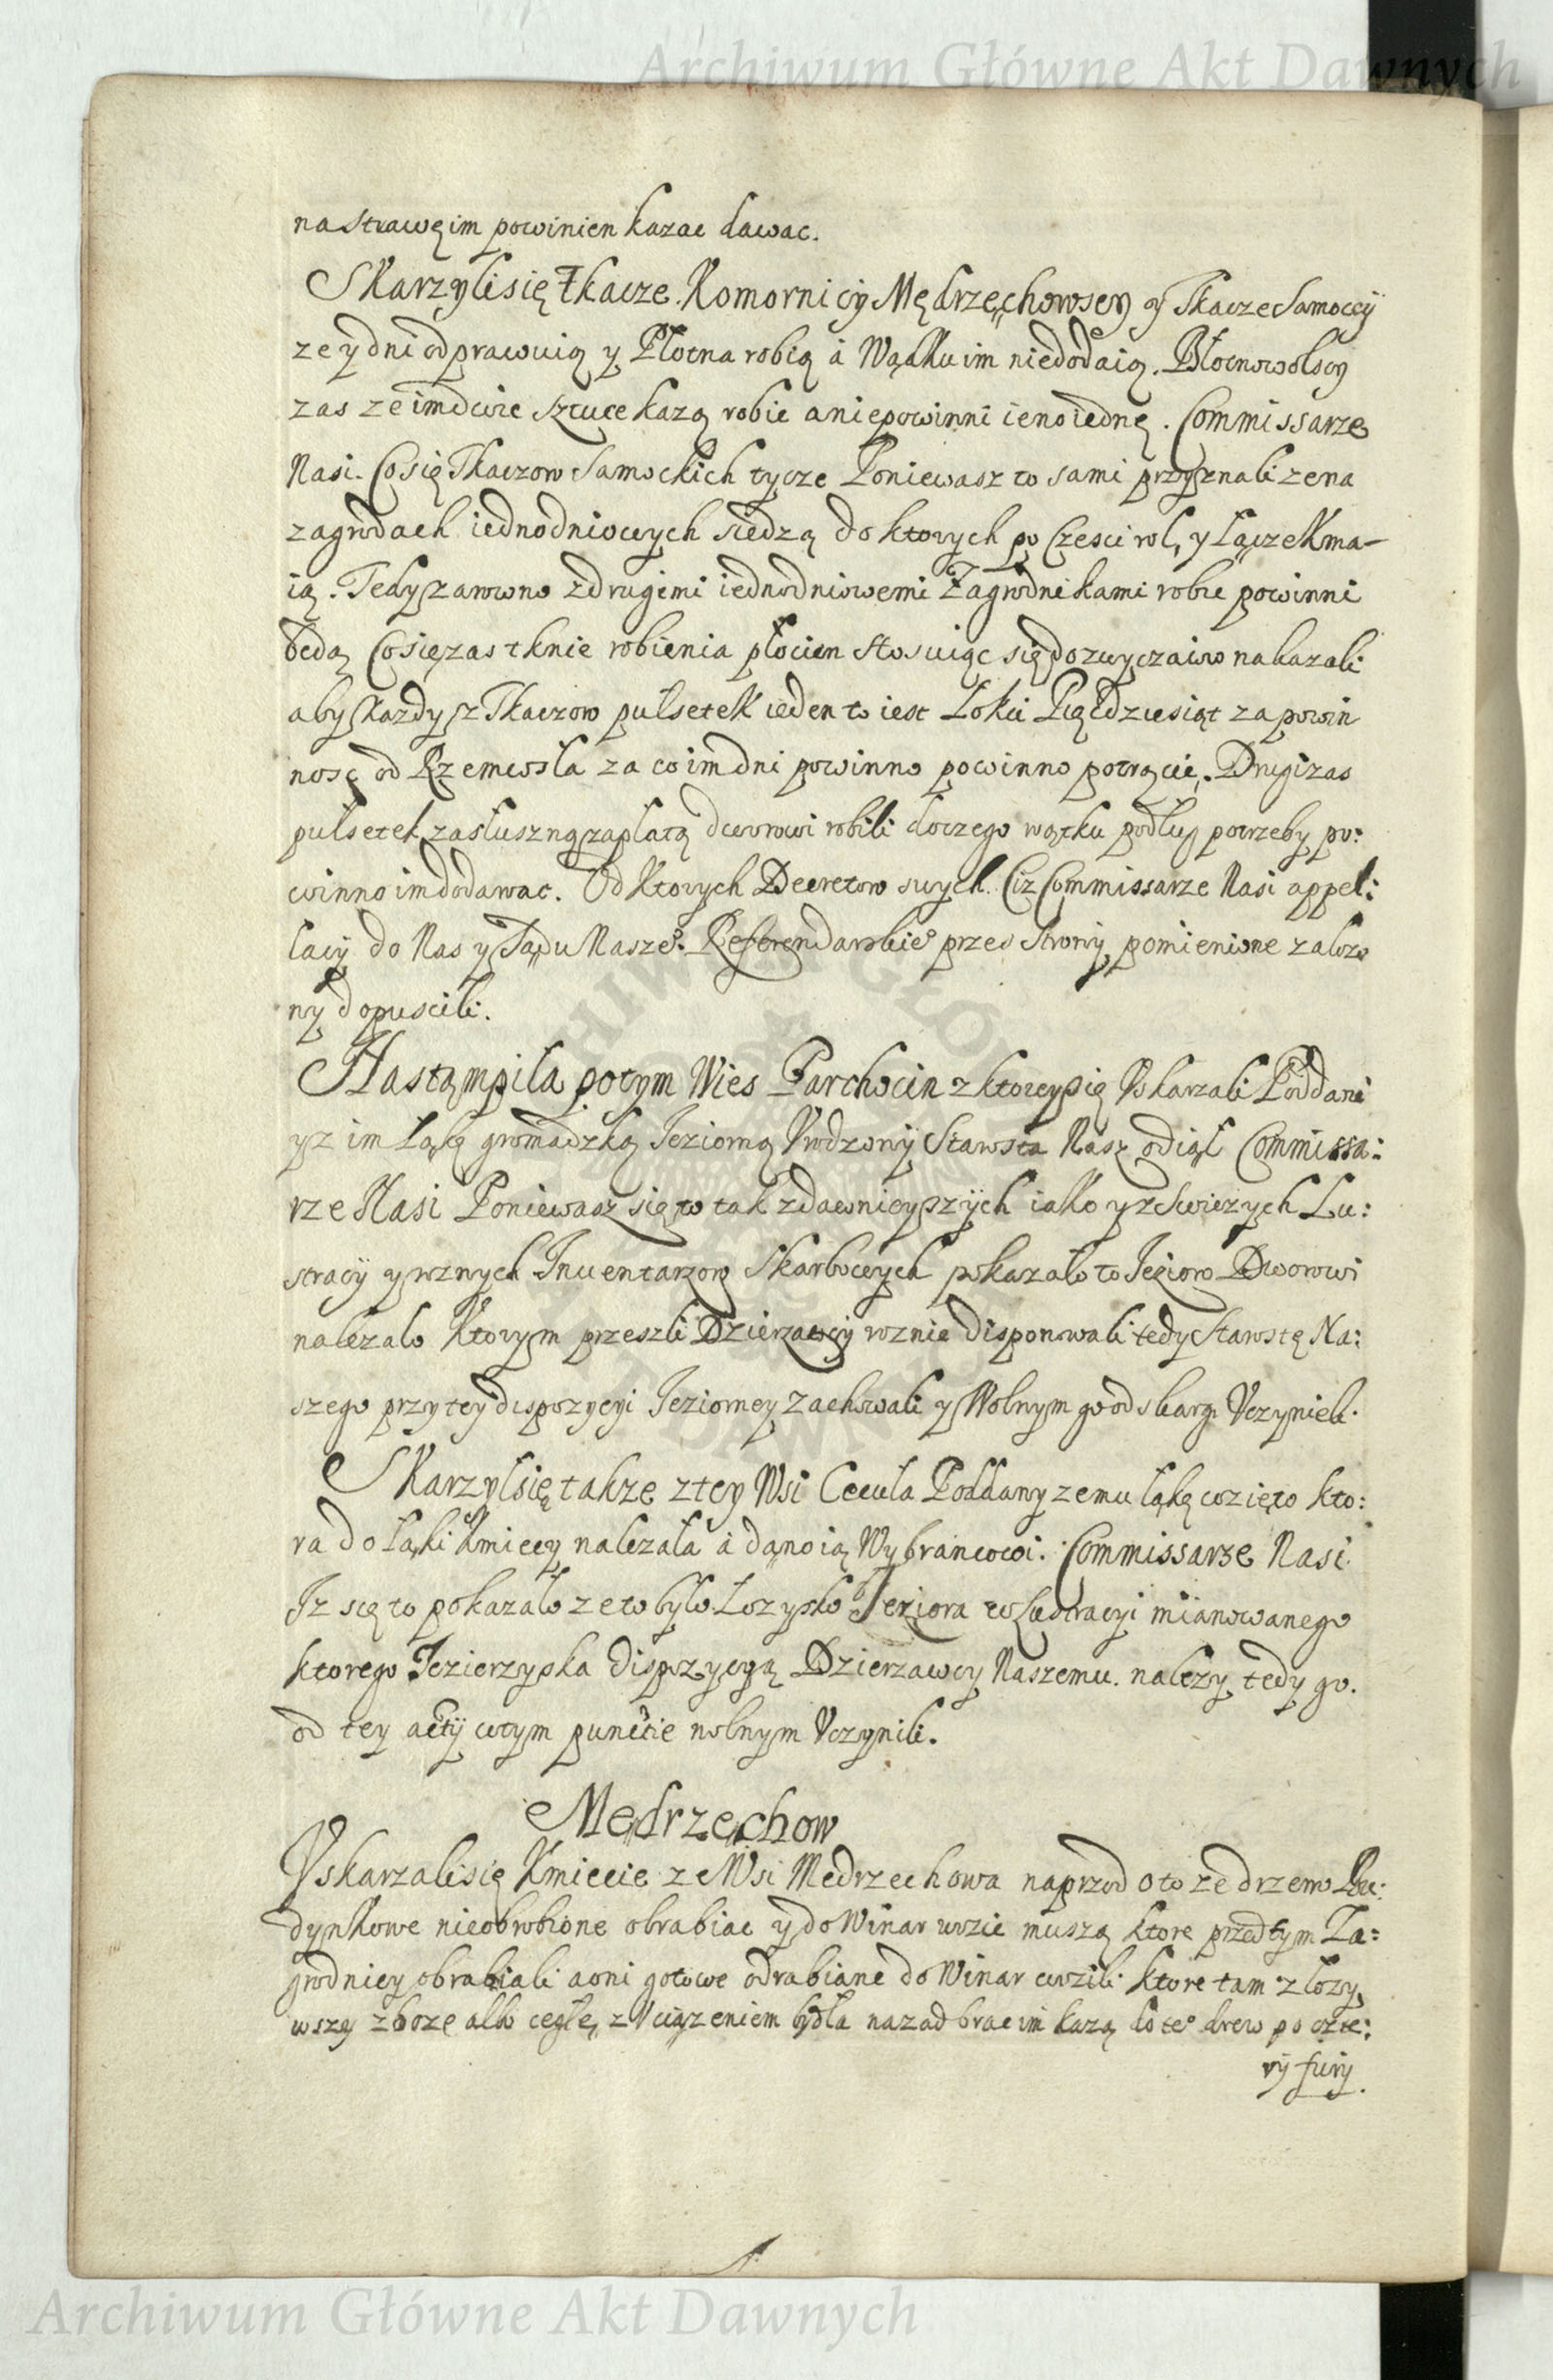 Archiwum Główne Akt Dawnych
na strawę im powinien kazac dawac.
Skarzyli się Tkacze Komornicy Mędrzęchowscy y Tkacze Samoccy
ze y dni odprawuią y Płotna robią á Wątku im niedodaią.
zas ze im dwie sztuce kazą robic a niepowinni ieno iednę. Commissarze
Nasi. Co się Tkaczow Samockich tycze Poniewasz to sami przyznali ze na
zagrodach iednodniowych siedzą do ktorych po Czesci rol, y Łączek ma-
ią. Tedy zarowno z drugiemi iednodniowemi Zagrodnikami robic powinni
będą Co się zas tknie robienia płocien stosuiąc się do zwyczaiow nakazali
aby kazdy z Tkaczow pułsetek ieden to iest Łokci Pięćdziesiąt za powin
nosc od Rzemiosła za co im dni powinno powinno potrącic. Drugi zas
pułsetek za słuszną zapłatą dworowi robili do czego wątku podług potrzeby po:
winno im dodawac. Od Ktorych Decretow swych Ciz Commissarze Nasi appel:
lacy do Nas y Sądu Naszeº Referendarskieº przez Strony pomienione załozo
ny dopuscili.
Nastąmpiła potym Wies Parchocin z ktorey się Uskarzali Poddani
yz im Łąkę gromadzką Jeziorną Urodzony Starosta Nasz odiął Commissa:
rze Nasi Poniewasz się to tak z dawnieyszych iako y ze swiezych Lu:
stracy y roznych Inuentarzow Skarbowych pokazało to Jezioro Dworowi
nalezało Ktorym przeszli Dzierzawcy roznie disponowali tedy Starostę Na:
szego przy tey dispozycyi Jezioney zachowali y Wolnym go od skargi Uczynieli.
Skarzył się takze z tey Wsi Cecuła Poddany ze mu łąkę wzięto kto:
ra do Łąki Kmiecy nalezała á dano ią Wybrancowi. Commissarze Nasi
Iz się to pokazało ze to było Łozysko Jeziora w Lustracyi mianowanego
ktorego Jezierzyska dispozycyą Dzierzawcy Naszemu nalezy tedy go
od tey actÿ w tym punctie wolnym Uczynili.
Mędrzęchow
Uskarzali się Kmiecie ze Wsi Medrzechowa naprzod o to ze drzewo Bu:
dynkowe nieobrobione obrabiac y do Winar wozic muszą ktore przedtym Za:
grodnicy obrabiali a oni gotowe odrabiane do Winar wozili ktore tam złozy,
wszy zboze albo cegłę, z Uciązeniem bydła nazad brac im kazą do teº drew po czte:
ry fury.
Archiwum Główne Akt Dawnych